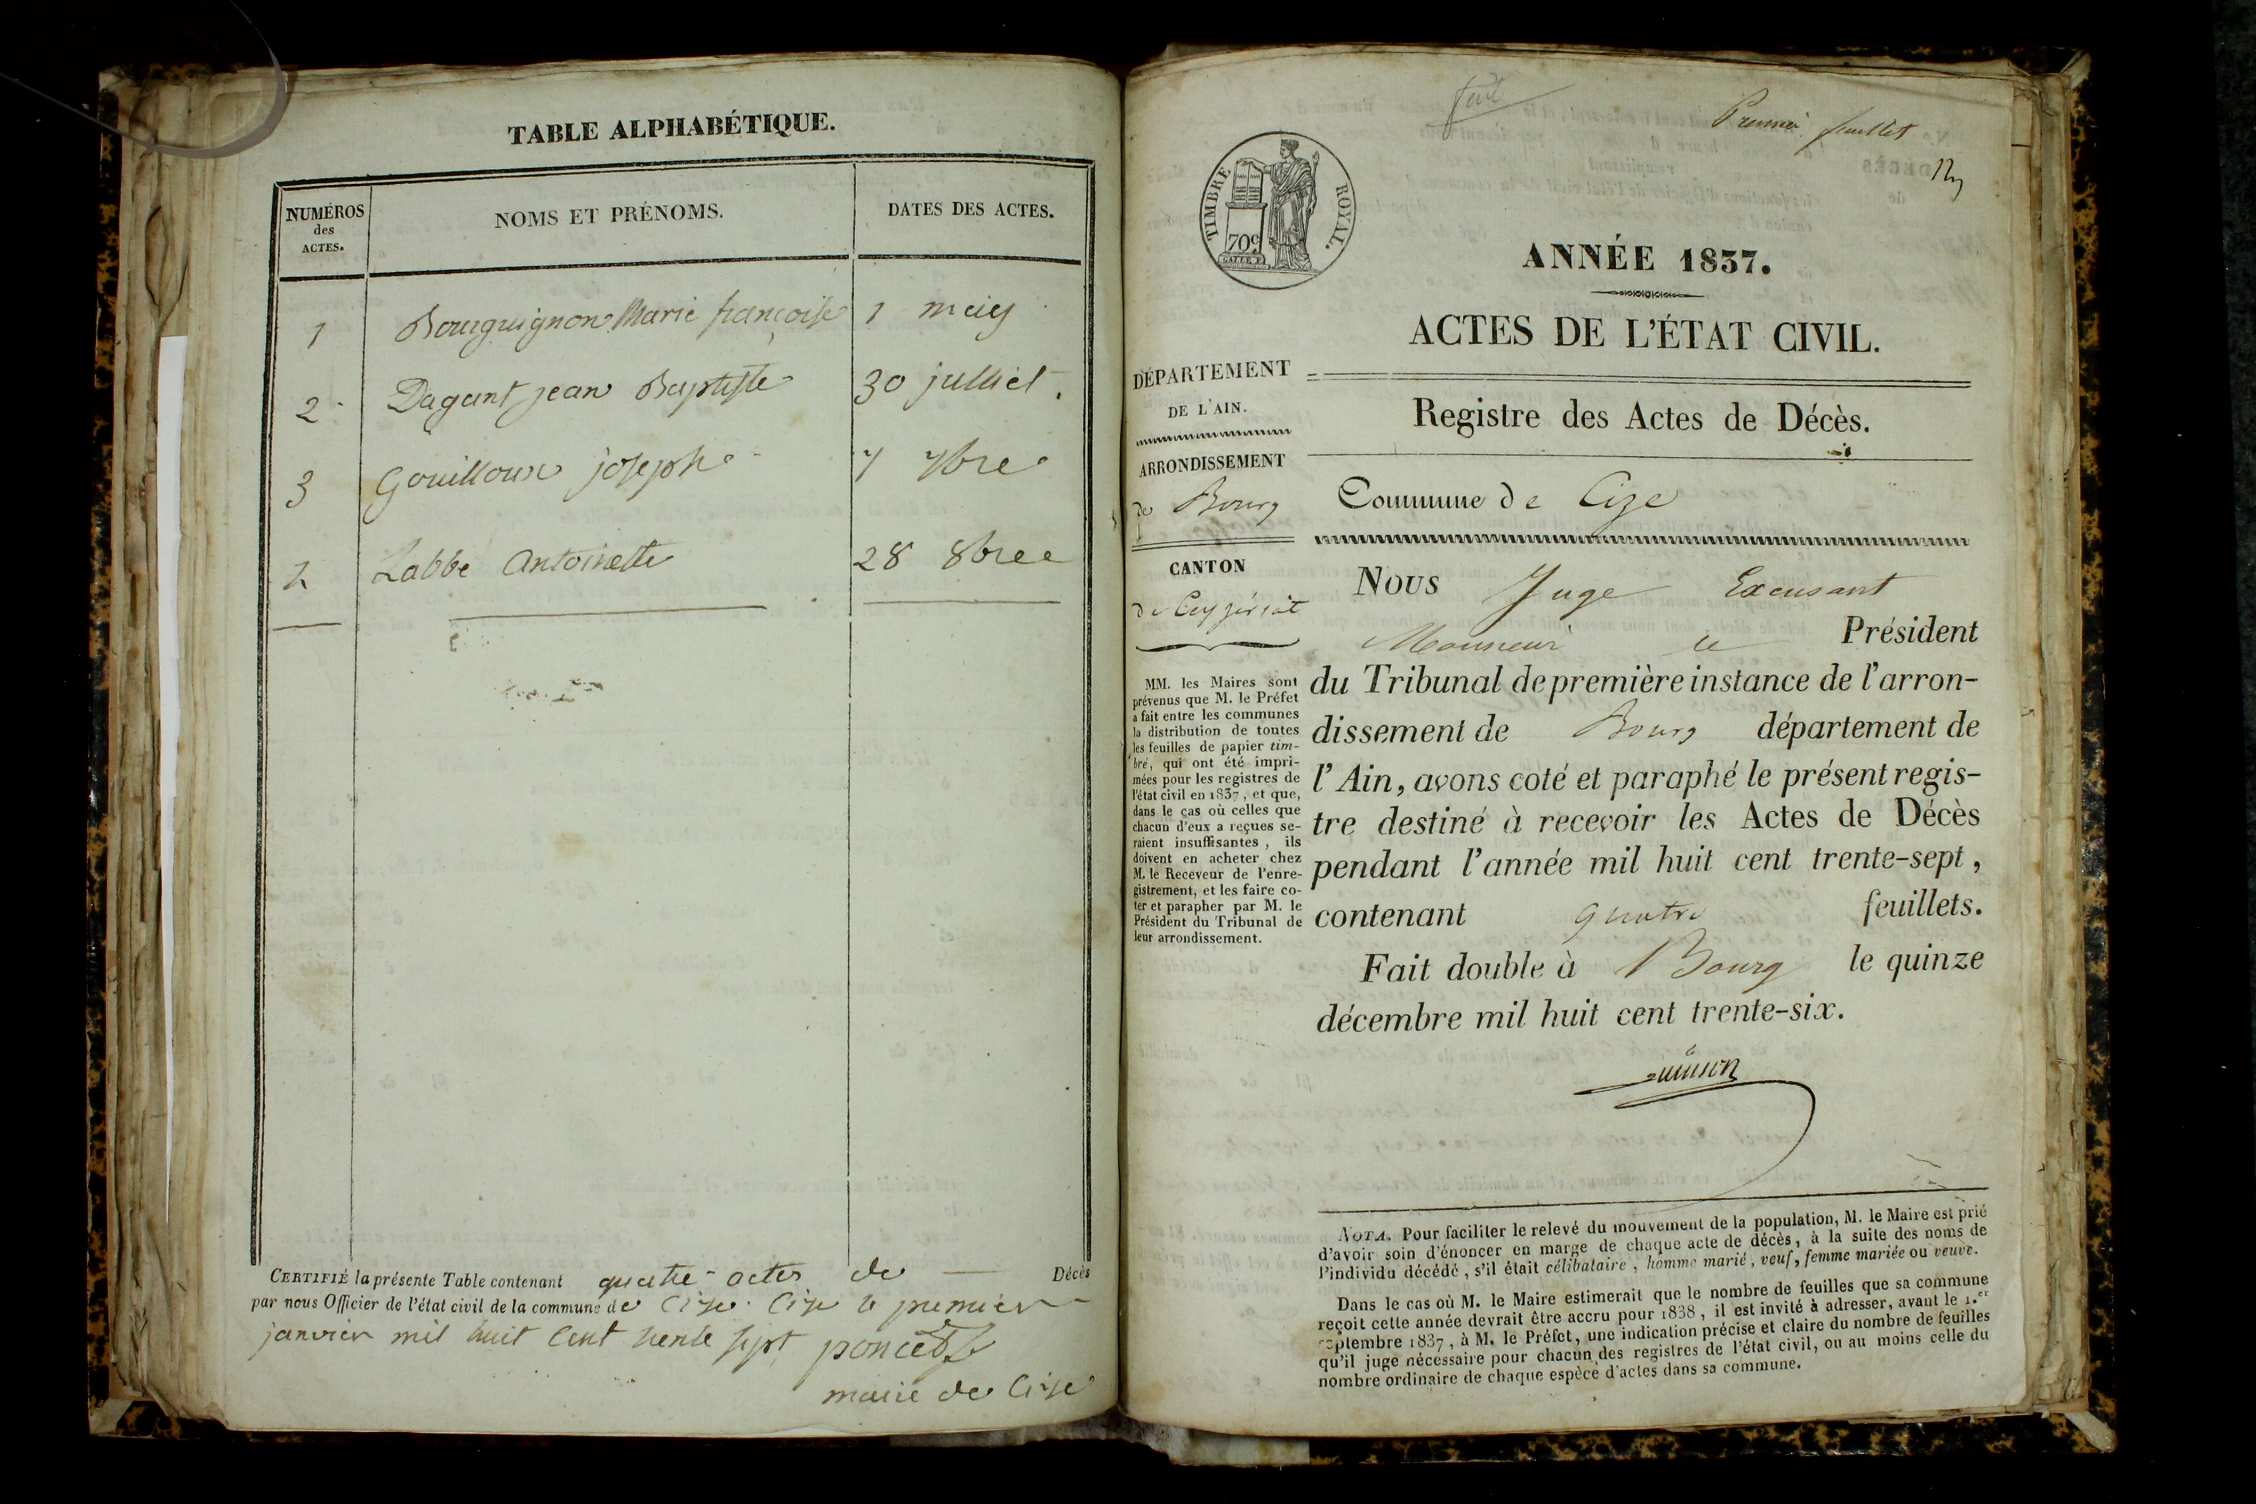 TABLE ALPHABÉTIQUE.
NUMÉROS
des
ACTES.
NOMS ET PRÉNOMS.
DATES DES ACTES.
1 Bourguignon Marie françoise 1 may
2 Dagant jean Baptiste 30 julliet.
3 Gouilloux joseph 7 7bre
4 Labbe Antoinette 28 8bre
CERTIFIÉ la présente Table contenant quatre actes de Décès
par nous Officier de l'état civil de la commune de Cize. Cize le premier
janvier mil huit cent trente sept poncet
maire de Cize
Premier feuillet
TIMBRE ROYAL.
70c
ANNÉE 1837.
ACTES DE L'ÉTAT CIVIL.
DÉPARTEMENT
DE L'AIN.
Registre des Actes de Décès.
ARRONDISSEMENT
de Bourg
Commune de Cize
CANTON
de Ceyzériat
MM. les Maires sont
prévenus que M. le Préfet
a fait entre les communes
la distribution de toutes
les feuilles de papier tim-
bré, qui ont été impri-
mées pour les registres de
l'état civil en 1837, et que,
dans le cas où celles que
chacun d'eux a reçues se-
raient insuffisantes, ils
doivent en acheter chez
M. le Receveur de l'enre-
gistrement, et les faire co-
ter et parapher par M. le
Président du Tribunal de
leur arrondissement.
Nous Juge Excusant
Monsieur le Président
du Tribunal de première instance de l'arron-
dissement de Bourg département de
l'Ain, avons coté et paraphé le présent regis-
tre destiné à recevoir les Actes de Décès
pendant l'année mil huit cent trente-sept,
contenant quatre feuillets.
Fait double à Bourg le quinze
décembre mil huit cent trente-six.
NOTA. Pour faciliter le relevé du mouvement de la population, M. le Maire est prié
d'avoir soin d'énoncer en marge de chaque acte de décès, à la suite des noms de
l'individu décédé, s'il était célibataire, homme marié, veuf, femme mariée ou veuve.
Dans le cas où M. le Maire estimerait que le nombre de feuilles que sa commune
reçoit cette année devrait être accru pour 1838, il est invité à adresser, avant le 1.er
septembre 1837, à M. le Préfet, une indication précise et claire du nombre de feuilles
qu'il juge nécessaire pour chacun des registres de l'état civil, ou au moins celle du
nombre ordinaire de chaque espèce d'actes dans sa commune.